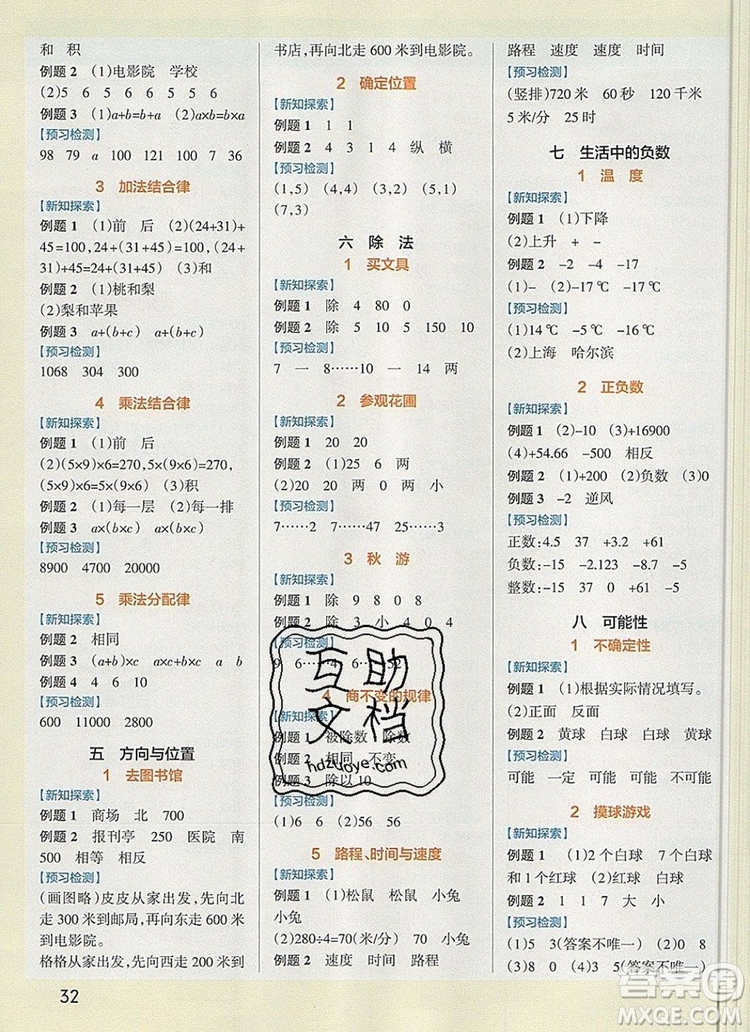 和 积
例题 2 (1)电影院 学校
(2)5 6 5 6 6 5 6 5
例题 3 (1)a+b=b+a (2)a×b=b×a
【预习检测】
98 79 a 100 121 100 7 36
3 加法结合律
【新知探索】
例题 1 (1)前 后 (2)(24+31)+
45=100,24+(31+45)=100,(24+
31)+45=24+(31+45) (3)和
例题 2 (1)桃和梨
(2)梨和苹果
例题 3 a+(b+c) a+(b+c)
【预习检测】
1068 304 300
4 乘法结合律
【新知探索】
例题 1 (1)前 后
(2)(5×9)×6=270,5×(9×6)=270,
(5×9)×6=5×(9×6) (3)积
例题 2 (1)每一层 (2)每一排
例题 3 a×(b×c) a×(b×c)
【预习检测】
8900 4700 20000
5 乘法分配律
【新知探索】
例题 2 相同
例题 3 (a+b)×c a×c+b×c a b
例题 4 4 6 10
【预习检测】
600 11000 2800
五 方向与位置
1 去图书馆
【新知探索】
例题 1 商场 北 700
例题 2 报刊亭 250 医院 南
500 相等 相反
【预习检测】
(画图略) 皮皮从家出发,先向北
走 300 米到邮局,再向东走 600 米
到电影院。
格格从家出发,先向西走 200 米到
32
书店,再向北走 600 米到电影院。
2 确定位置
【新知探索】
例题 1 1 1
例题 2 4 3 1 4 纵 横
【预习检测】
(1,5) (4,4) (3,2) (5,1)
(7,3)
六 除 法
1 买文具
【新知探索】
例题 1 除 4 80 0
例题 2 除 5 10 5 150 10
【预习检测】
7 一 8……10 一 14 两
2 参观花圃
【新知探索】
例题 1 20 20
例题 2 (1)25 6 两
(2)20 20 两 0 两 小
【预习检测】
7……2 7……47 25……4
3 秋 游
【新知探索】
例题 1 除 9 8 0 8
例题 2 除 3 小 4 0 4
【预习检测】
4 商不变的规律
【新知探索】
例题 1 被除数 除数
例题 2 相同 不变
例题 3 除以 10
【预习检测】
(1)6 6 (2)56 56
5 路程、时间与速度
【新知探索】
例题 1 (1)松鼠 松鼠 小兔
小兔
(2)280÷4=70(米/分) 70 小兔
例题 2 速度 时间 路程
路程 速度 速度 时间
【预习检测】
(竖排)720 米 60 秒 120 千米
5 米/分 25 时
七 生活中的负数
1 温 度
【新知探索】
例题 1 (1)下降
(2)上升 + -
例题 2 -8 -2 -17
(1) -(-8)-17℃ -17℃
【预习检测】
(1)14℃ -5℃ -16℃
(2)上海 哈尔滨
2 正负数
【新知探索】
例题 1 (2)-10 (3)+16900
(4)+54.50 -66.00 相反
例题 2 (1)+200 (2)负数 (3)0
例题 3 -2 逆风
【预习检测】
正数:4.5 37 +2.3
负数:-15 -2.123 -8.7 -91
整数:-15 37 -91
八 可能性
1 不确定性
【新知探索】
例题 1 (1)根据实际情况填写。
(2)正面 反面
例题 2 黄球 白球 白球 黄球
【预习检测】
可能 一定 可能 可能 不可能
2 摸球游戏
【新知探索】
例题 1 (1)2 个白球 7 个白球
8 个红球 (2)1 个红球 1 个白球
例题 2 1 1 7 大 小
【预习检测】
(1)5 3(答案不唯一) (2)0 8
(3)8 0 (4)3 5(答案不唯一)
互助
文档
hdzuoye.com
答案圈
MXQE.COM